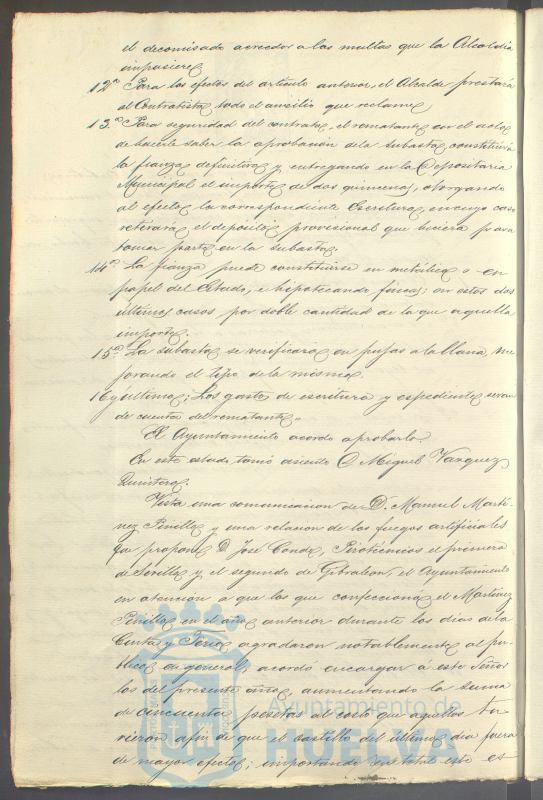 el decomisado acreedor a las multas que la Alcaldia
impusiere
12ª Para los efectos del articulo anterior, el Alcalde prestará
al Contratista todo el ausilio que reclame,
13.ª Para seguridad del contrato, el rematante en el acto
de hacerle saber la aprobacion de la subasta constituirá
la fianza definitiva y entregando en la Depositaria
Municipal el importe de dos quincenas, otorgando
al efecto la correspondiente Escritura, en cuyo caso
retirará el depósito provisional que hiciera para
tomar parte en la subasta.
14ª La fianza puede constituirse en metálico o en
papel del Estado, e hipotecando fincas; en estos dos
últimos casos por doble cantidad de la que aquella
importe.
15ª La subasta se verificará en pujas a la llana, me
jorando el tipo de la misma
16 y ultima; Los gastos de escritura y espediente seran
de cuenta del rematante.
El Ayuntamiento acordó aprobarlo
En este estado, tomó asiento D Miguel Vazquez
Quintero.
Vista una comunicacion de D. Manuel Marti
nez Pinillo y una relacion de los fuegos artificiales
que propone D José Conde, Pirotécnicos el primero
de Sevilla y el segundo de Gibraleon, el Ayuntamiento
en atencion a que los que confeccionó el Martinez
Pinillo en el año anterior durante los dias de la
Cinta y Feria agradaron notablemente al pú-
blico en general, acordó encargar á este Señor
los del presente año, aumentando la suma
de cincuenta pesetas al costo que aquellos tu-
vieron a fin de que el castillo del último dia fuera
de mayor efecto; importando en total este es
Ayuntamiento de
HUELVA